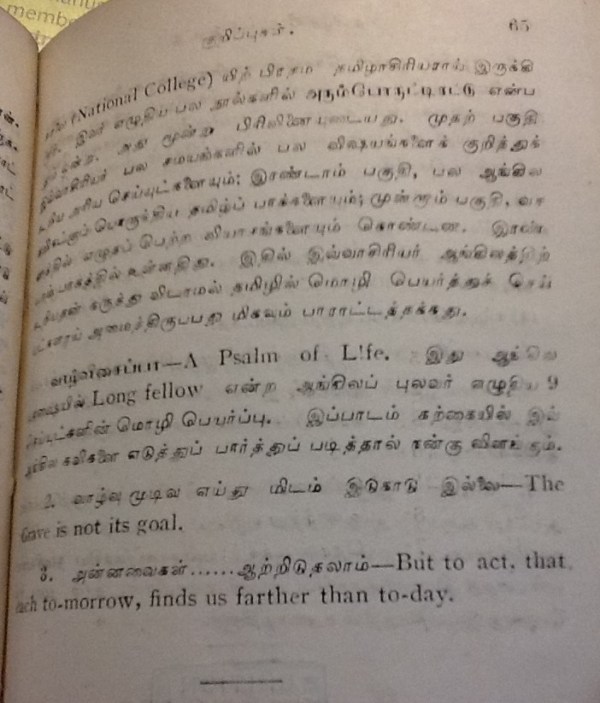 குறிப்புகள். 65
(National College) யிற் பிரதம தமிழாசிரியராய் இருக்கி
இவர் எழுதிய பல நூல்களில் அரும்பொருட்டிரட்டு என்ப
அது மூன்று பிரிவினையுடையது. முதற் பகுதி
இவ்வாசிரியர் பல சமயங்களில் பல விஷயங்களைக் குறித்துக்
கூறிய அரிய செய்யுட்களையும்; இரண்டாம் பகுதி, பல ஆங்கில
தமிழ்ப் பாக்களையும்; மூன்றாம் பகுதி, வச
எழுதப் பெற்ற வியாசங்களையும் கொண்டன. இரண்
உள்ளதிது. இதில் இவ்வாசிரியர் ஆங்கிலத்திற்
கருத்து விடாமல் தமிழில் மொழி பெயர்த்துச் செய்
அமைத்திருப்பது மிகவும் பாராட்டத்தக்கது.
வாழ்விசைப்பா—A Psalm of Life. இது ஆங்கில
Long fellow என்ற ஆங்கிலப் புலவர் எழுதிய 9
செய்யுட்களின் மொழி பெயர்ப்பு. இப்பாடம் கற்கையில் இவ்
ஆங்கில கவிகளை எடுத்துப் பார்த்துப் படித்தால் நன்கு விளங்கும்.
2. வாழ்வு முடிவு எய்து மிடம் இடுகாடு இல்லை—The
Grave is not its goal.
3. அன்னவைகள்......ஆற்றிடுதலாம்—But to act, that
each to-morrow, finds us farther than to-day.